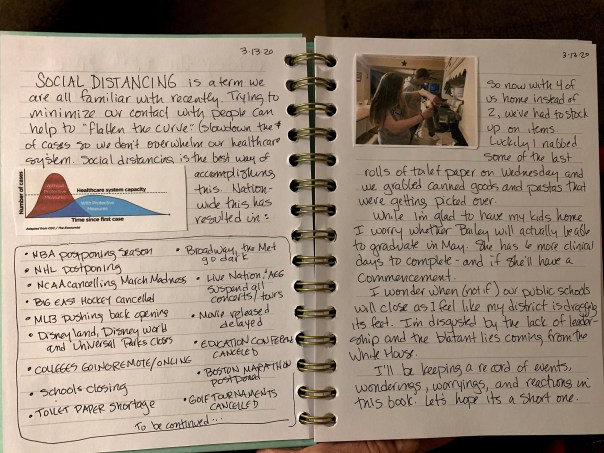 3.13.20
SOCIAL DISTANCING is a term we
are all familiar with recently. Trying to
minimize our contact with people can
help to "flatten the curve" (slow down the #
of cases so we don't overwhelm our healthcare
system. Social distancing is the best way of
accomplishing
this. Nation-
wide this has
resulted in:
Number of cases
Without
Protective
Measures
Healthcare system capacity
With Protective
Measures
Time since first case
Adapted from CDC / The Economist
• NBA postponing season
• NHL postponing
• NCAA cancelling March Madness
• BIG EAST Hockey cancelled
• MLB pushing back opening
• Disneyland, Disney World
and Universal Parks closing
• COLLEGES GOING REMOTE/ONLINE
• Schools closing
• TOILET PAPER Shortage
• Broadway, the Met
go dark
• Live Nation/AEG
suspend all
concerts/tours
• Movie released
delayed
• EDUCATION CONFERENCE
CANCELED
• BOSTON MARATHON
POSTPONED
• GOLF TOURNAMENTS
CANCELLED
To be continued...
3.13.20
So now with 4 of
us home instead of
2, we've had to stock
up on items.
Luckily I nabbed
some of the last
rolls of toilet paper on Wednesday and
we grabbed canned goods and pastas that
were getting picked over.
While I'm glad to have my kids home
I worry whether Bailey will actually be able
to graduate in May. She has 6 more clinical
days to complete - and if she'll have a
Commencement.
I wonder when (not if) our public schools
will close as I feel like my district is dragging
its feet. I'm disgusted by the lack of leader-
ship and the blatant lies coming from the
White House.
I'll be keeping a record of events,
wonderings, worryings, and reactions in
this book. Let's hope its a short one.